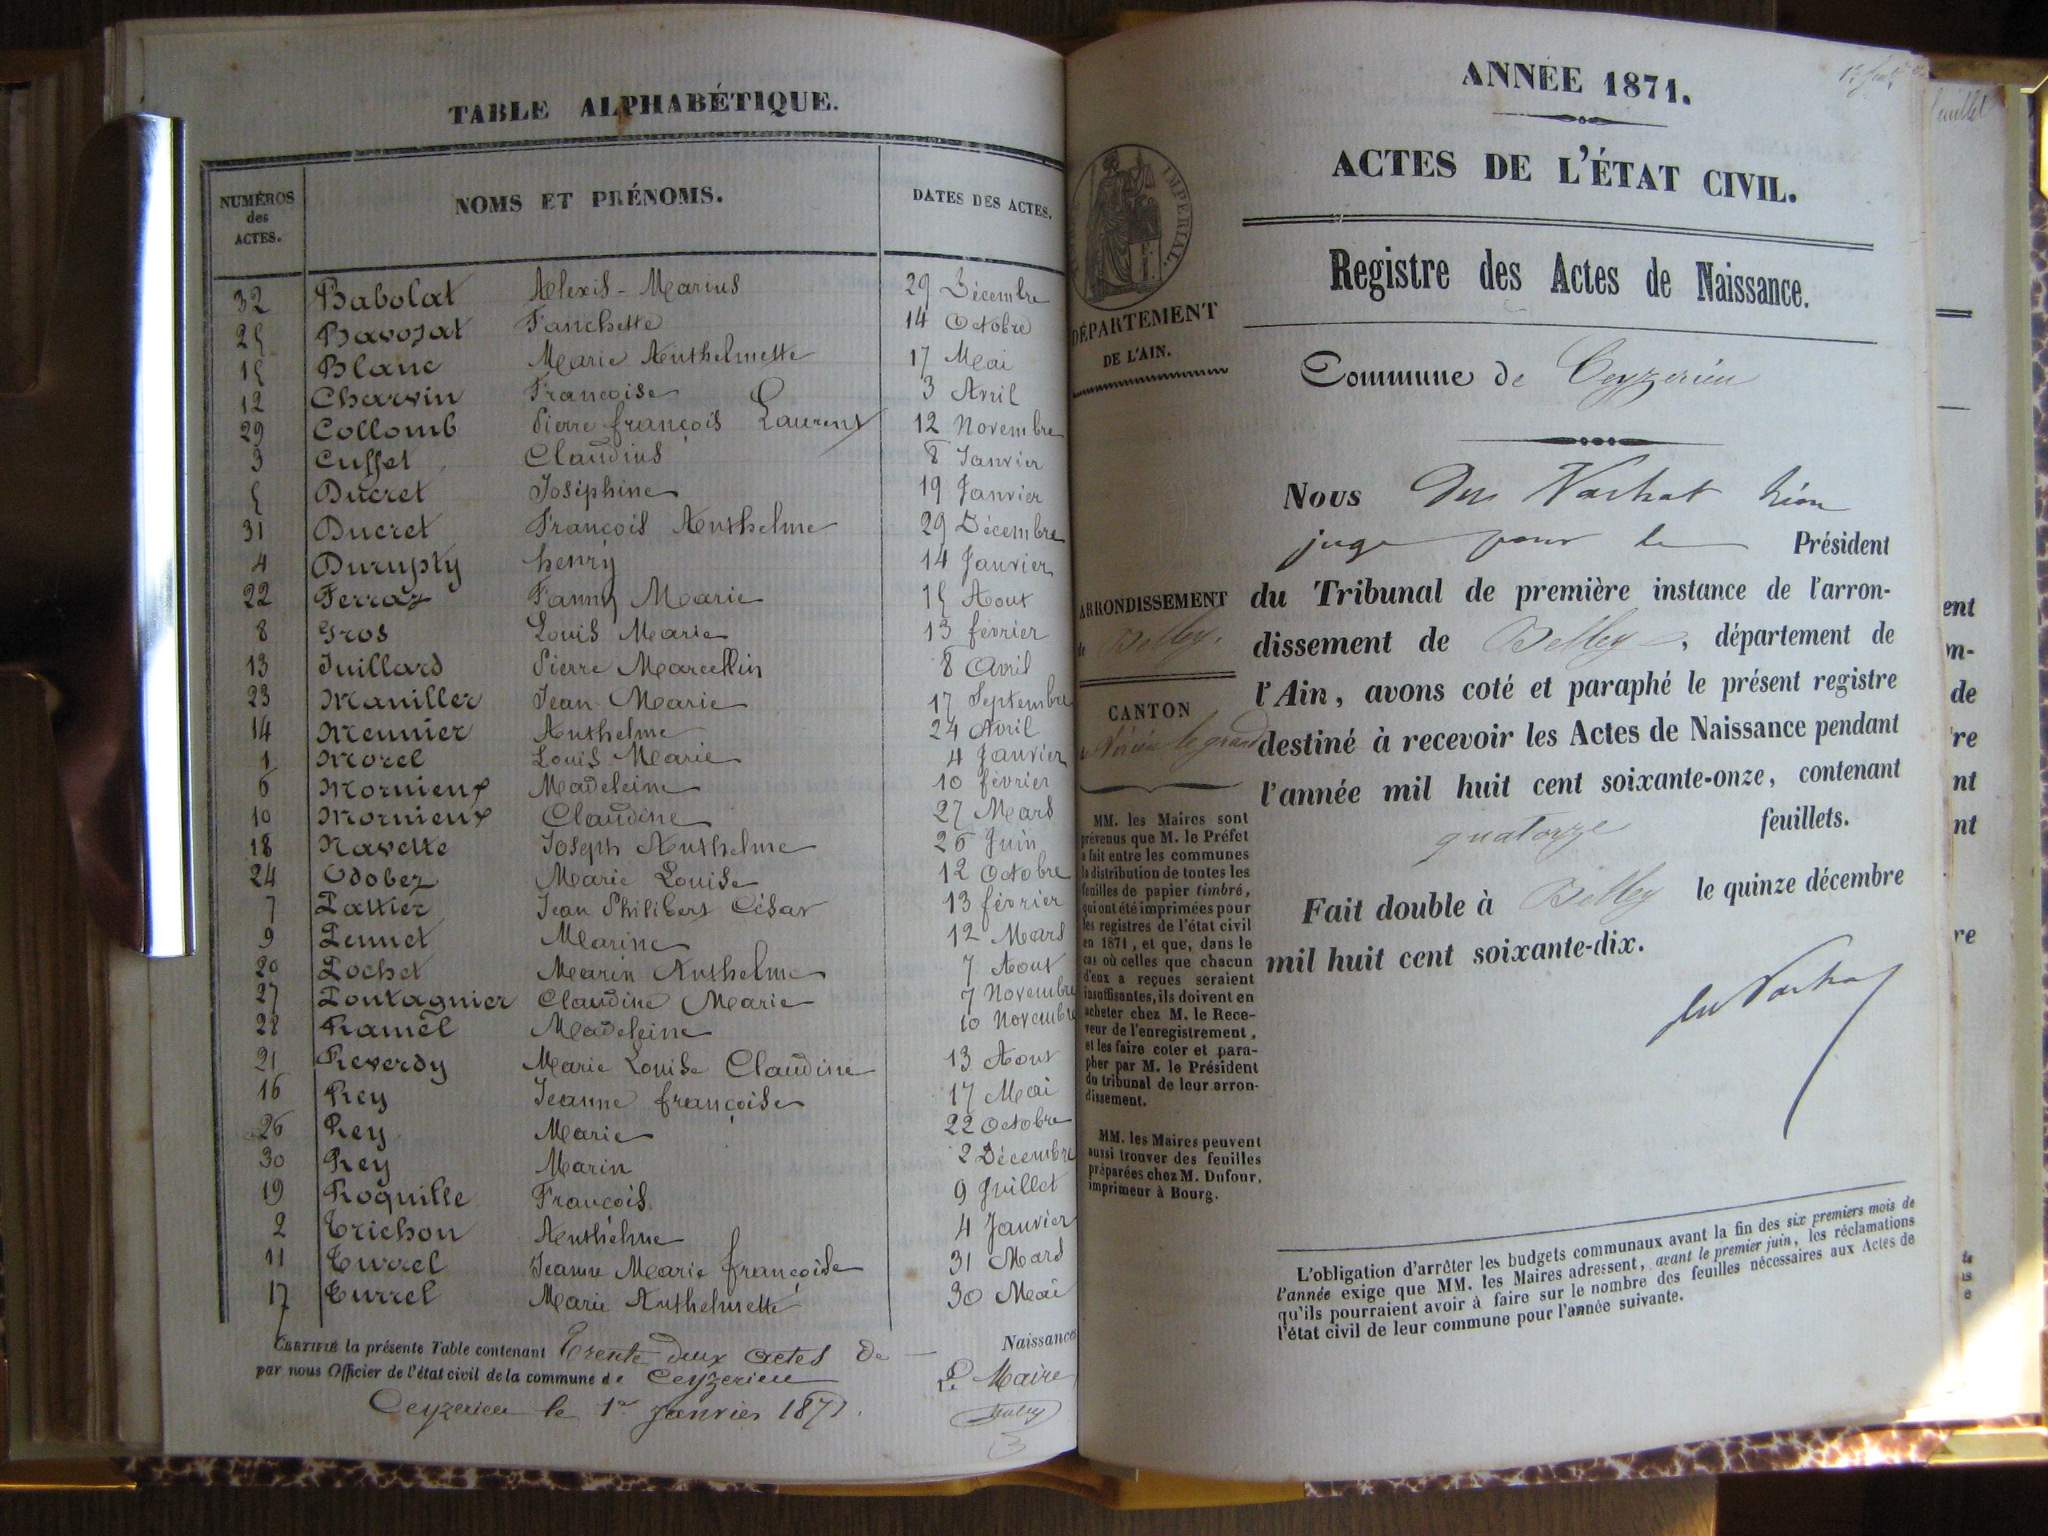 TABLE ALPHABÉTIQUE.
NUMÉROS des ACTES. NOMS ET PRÉNOMS. DATES DES ACTES.
32 Babolat Alexis-Marius 29 Décembre
25 Bavozat Fanchette 14 Octobre
15 Blanc Marie Anthelmette 17 Mai
12 Charvin Françoise 3 Avril
29 Collomb Pierre françois Laurent 12 Novembre
3 Cuffet Claudius 8 Janvier
5 Ducret Joséphine 19 Janvier
31 Ducret François Anthelme 29 Décembre
4 Durupty henry 14 Janvier
22 Ferraz Fanny Marie 15 Aout
8 Gros Louis Marie 13 février
13 Juillard Pierre Marcellin 8 Avril
23 Maniller Jean Marie 17 Septembre
14 Meunier Anthelme 24 Avril
1 Morel Louis Marie 4 Janvier
6 Mornieux Madeleine 10 février
10 Mornieux Claudine 27 Mars
18 Navette Joseph Anthelme 26 Juin
24 Odobez Marie Louise 12 Octobre
7 Pattier Jean Philibert César 13 février
9 Pennet Marine 12 Mars
20 Pochet Marin Anthelme 7 Aout
27 Pontagnier Claudine Marie 7 Novembre
28 Ramel Madeleine 10 Novembre
21 Reverdy Marie Louise Claudine 13 Aout
16 Rey Jeanne françoise 17 Mai
26 Rey Marie 22 Octobre
30 Rey Marin 2 Décembre
19 Roquille François 9 Juillet
2 Trichon Anthelme 4 Janvier
11 Turrel Jeanne Marie françoise 31 Mars
17 Turrel Marie Anthelmette 30 Mai
CERTIFIÉ la présente Table contenant Trente deux actes de Naissances
par nous Officier de l'état civil de la commune de Ceyzerieu
Ceyzerieu le 1er Janvier 1871. Le Maire
ANNÉE 1871.
ACTES DE L'ÉTAT CIVIL.
Registre des Actes de Naissance.
IMPÉRIAL
DÉPARTEMENT
DE L'AIN.
Commune de Ceyzerieu
Nous Du Vachat Léon
juge pour le Président
du Tribunal de première instance de l'arron-
dissement de Belley, département de
l'Ain, avons coté et paraphé le présent registre
destiné à recevoir les Actes de Naissance pendant
l'année mil huit cent soixante-onze, contenant
quatorze feuillets.
Fait double à Belley le quinze décembre
mil huit cent soixante-dix.
du Vachat
ARRONDISSEMENT
de Belley.
CANTON
de Virieu le grand
MM. les Maires sont
prévenus que M. le Préfet
a fait entre les communes
la distribution de toutes les
feuilles de papier timbré,
qui ont été imprimées pour
les registres de l'état civil
en 1871, et que, dans le
cas où celles que chacun
d'eux a reçues seraient
insuffisantes, ils doivent en
acheter chez M. le Rece-
veur de l'enregistrement,
et les faire coter et para-
pher par M. le Président
du tribunal de leur arron-
dissement.
MM. les Maires peuvent
aussi trouver des feuilles
préparées chez M. Dufour,
imprimeur à Bourg.
L'obligation d'arrêter les budgets communaux avant la fin des six premiers mois de
l'année exige que MM. les Maires adressent, avant le premier juin, les réclamations
qu'ils pourraient avoir à faire sur le nombre des feuilles nécessaires aux Actes de
l'état civil de leur commune pour l'année suivante.